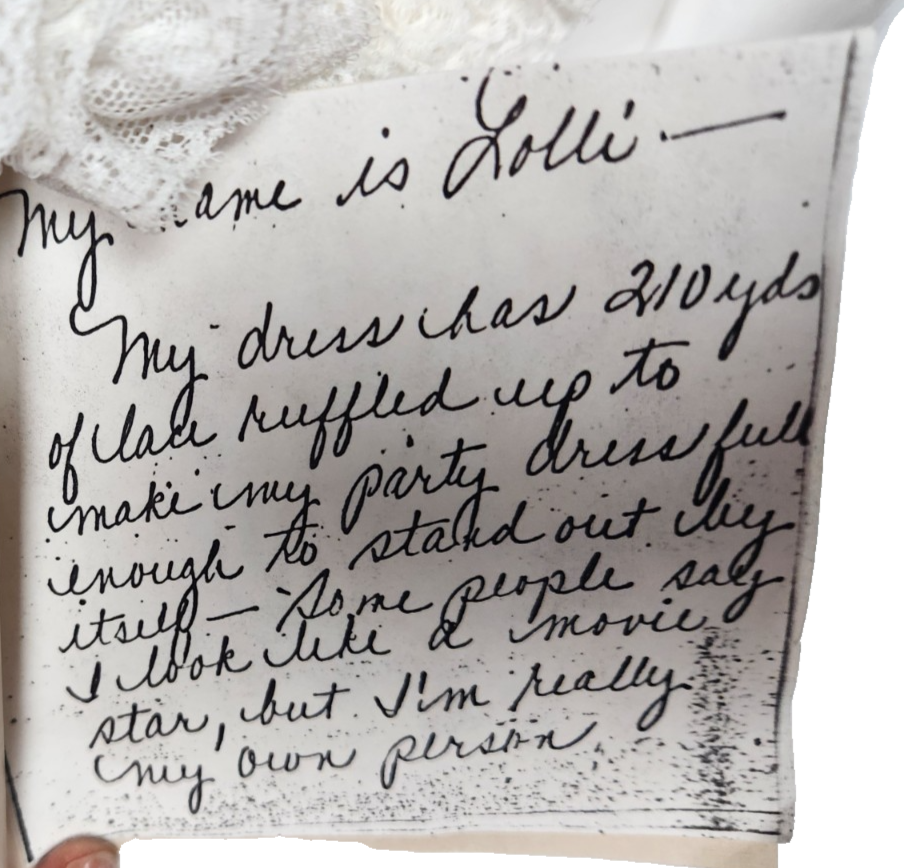 My name is Lolli —
My dress has 210 yds
of lace ruffled up to
make my party dress full
enough to stand out by
itself — Some people say
I look like a movie
star, but I'm really
my own person.